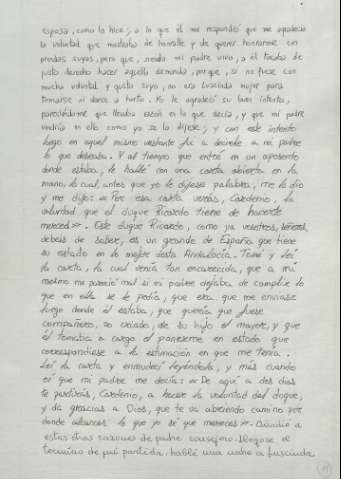 esposa, como lo hice; a lo que él me respondió que me agradecía
la voluntad que mostraba de honralle y de querer honrarme con
prendas suyas, pero que, siendo mi padre vivo, a él tocaba de
justo derecho hacer aquella demanda, porque, si no fuese con
mucha voluntad y gusto suyo, no era Luscinda mujer para
tomarse ni darse a hurto. Yo le agradecí su buen intento,
pareciéndome que llevaba razón en lo que decía, y que mi padre
vendría en ello como yo se lo dijese; y con este intento
luego en aquel mismo instante fui a decirle a mi padre
lo que deseaba. Y al tiempo que entré en un aposento
donde estaba, le hallé con una carta abierta en la
mano, la cual, antes que yo le dijese palabra, me la dio
y me dijo: «Por esa carta verás, Cardenio, la
voluntad que el duque Ricardo tiene de hacerte
merced». Este duque Ricardo, como ya vosotros, señores,
debéis de saber, es un grande de España que tiene
su estado en lo mejor desta Andalucía. Tomé y leí
la carta, la cual venía tan encarecida, que a mí
mesmo me pareció mal si mi padre dejaba de cumplir lo
que en ella se le pedía, que era que me enviase
luego donde él estaba, que quería que fuese
compañero, no criado, de su hijo el mayor, y que
él tomaba a cargo el ponerme en estado que
correspondiese a la estimación en que me tenía.
Leí la carta y enmudecí leyéndola, y más cuando
oí que mi padre me decía: «De aquí a dos días
te partirás, Cardenio, a hacer la voluntad del duque,
y da gracias a Dios, que te va abriendo camino por
donde alcances lo que yo sé que mereces». Añadió a
estas otras razones de padre consejero. Llegose el
término de mi partida, hablé una noche a Luscinda,